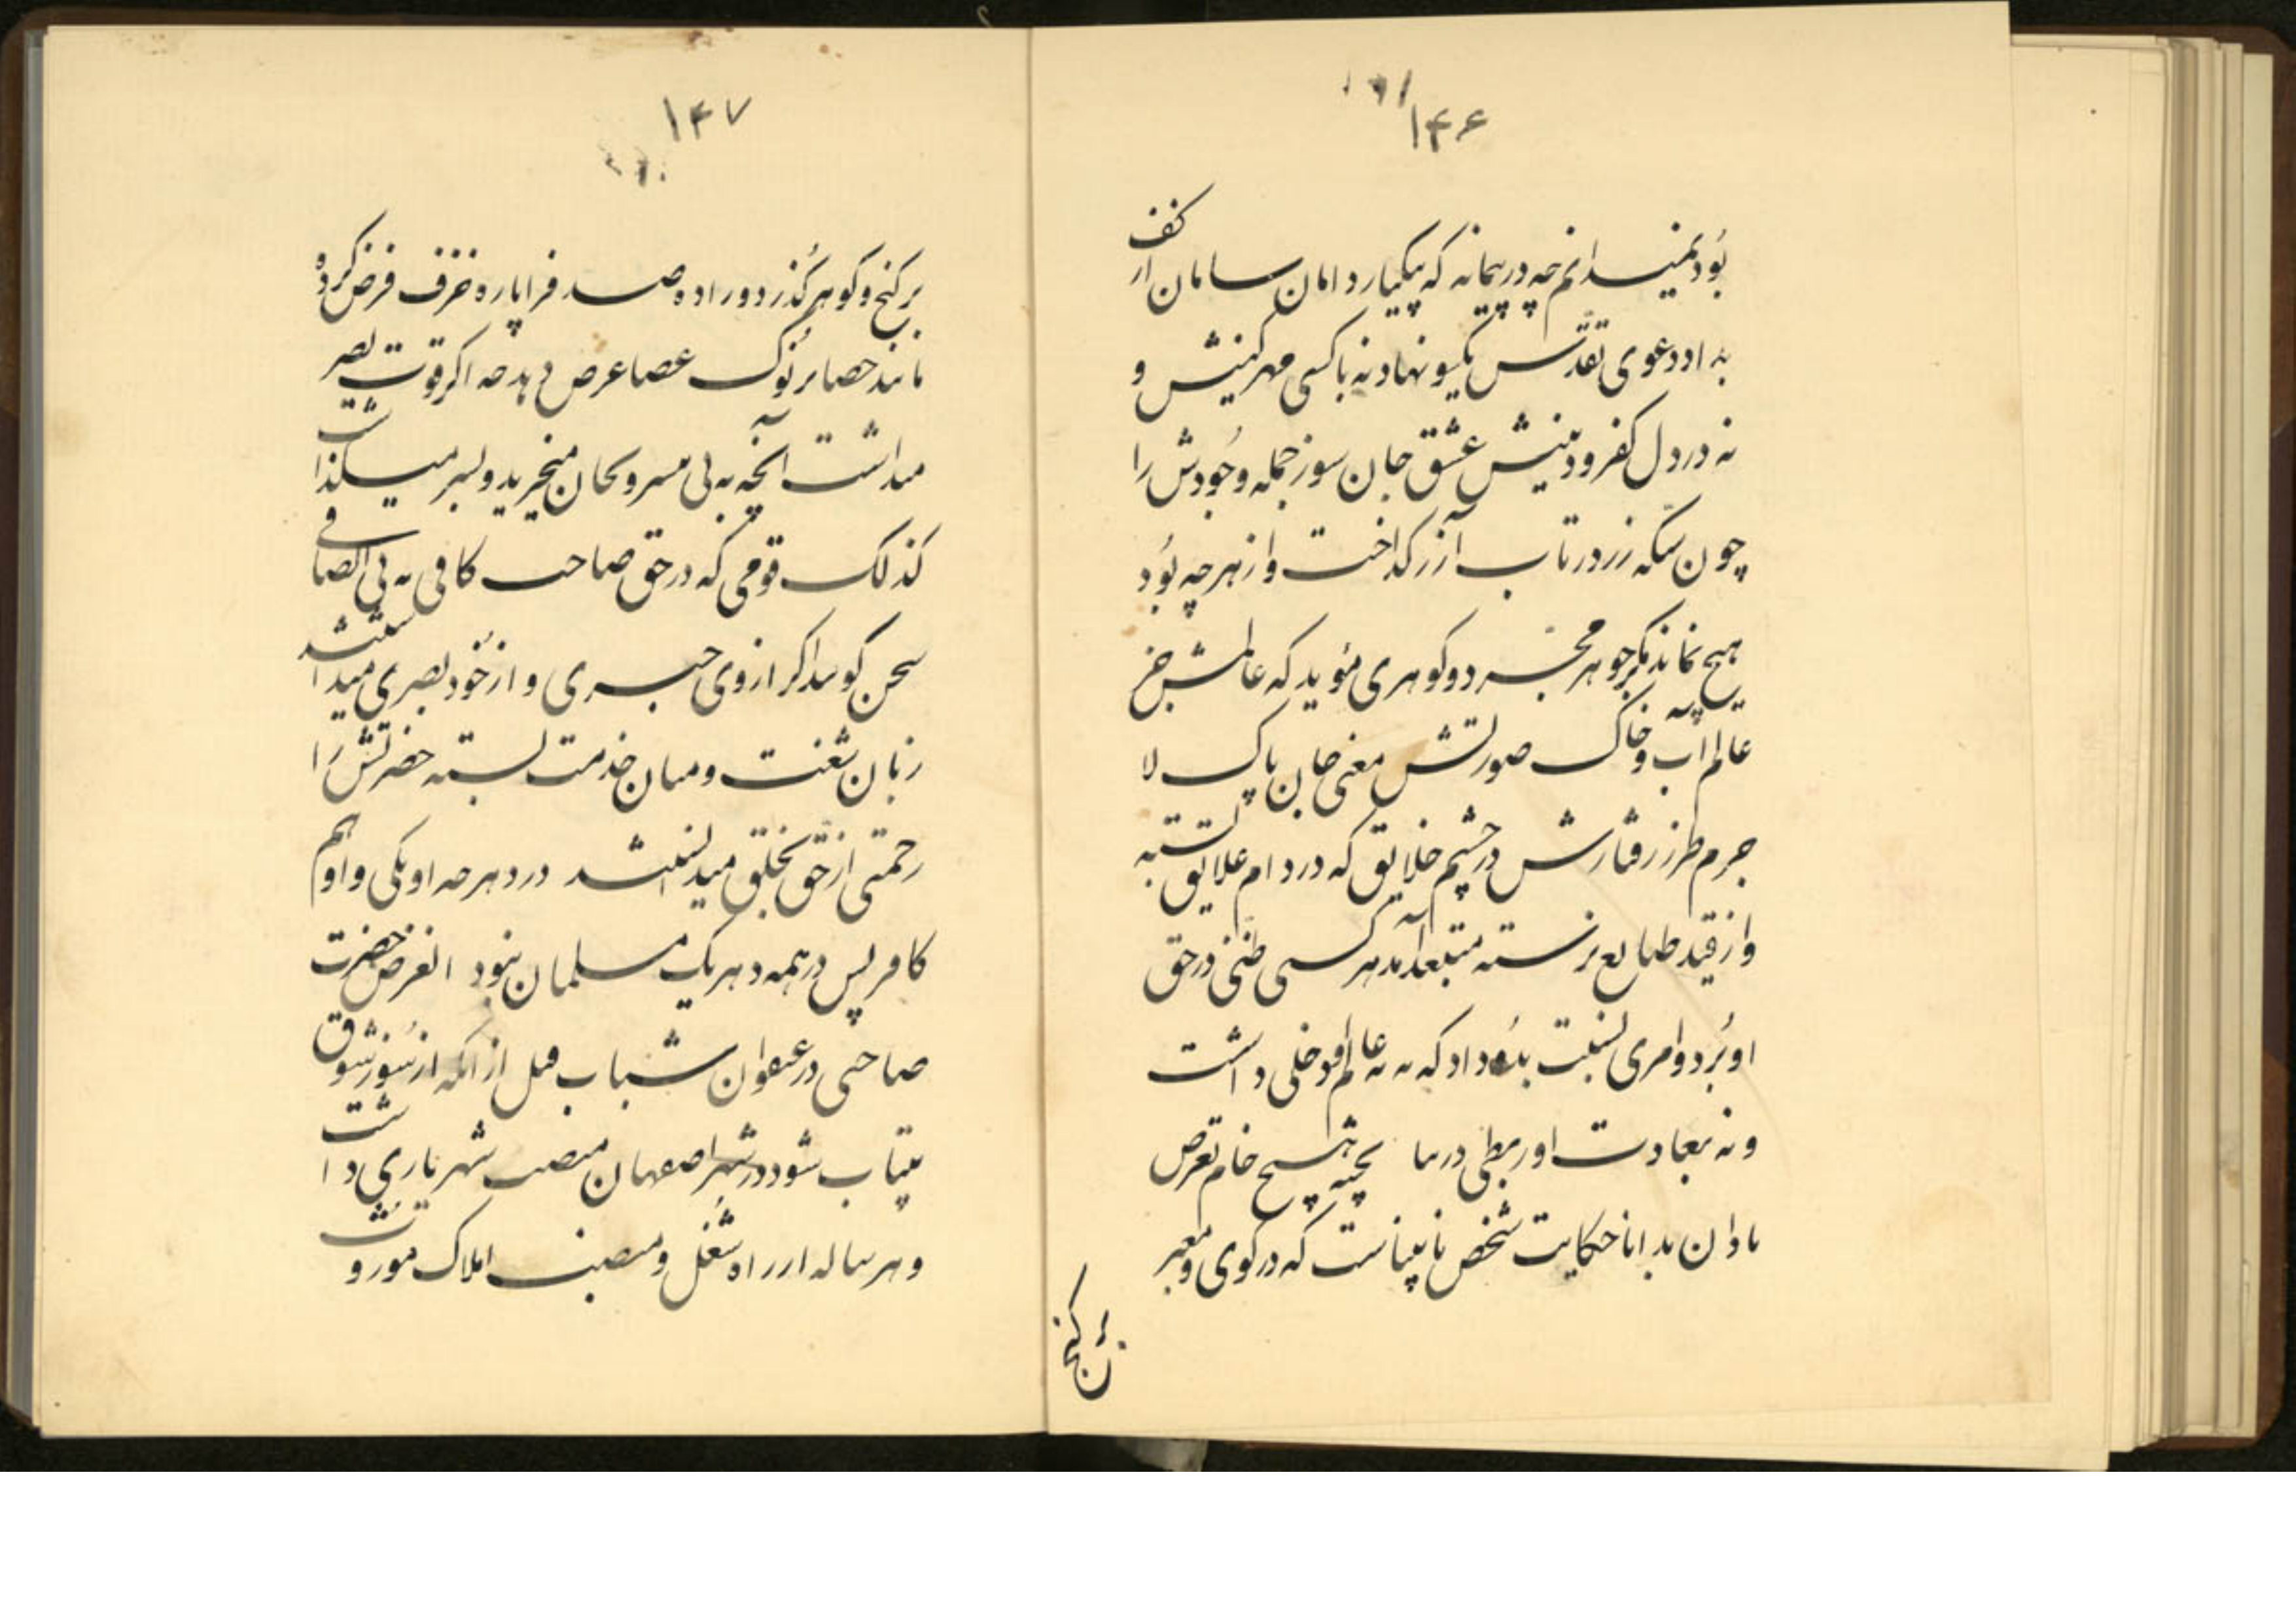 ۱۴۶
بود نمیدانم چه در پیمانه که یکبار دامان سامان از کف
بداد و دعوی تقدس یکسو نهاد نه با کسی مهر و کینش و
نه در دل کفر و دینش عشق جان سوز جمله وجودش را
چون سکه زر در تاب آذر گداخت و از هر چه بود
هیچ نماند مگر جوهر مجرد و گوهری مؤید که عالمش جز
عالم آب و خاک صورتش معنی جان پاک لا
جرم طرز رفتارش در چشم خلایق که در دام علایق بسته
و از قید طبایع نرسته مستبعد آمد هر کسی ظنی در حق
او برد و امری نسبت بدو داد که نه به عالم او دخلی داشت
و نه بعادت او ربطی در پخته هیچ خام تعرض
نادان بدانا حکایت شخص نابیناست که در کوی و معبر
بر گنج
۱۴۷
بر گنج و گوهر گذرد و را ده صد فرا پاره خزف فرض کرده
مانند حصا بر نوک عصا عرض دهد چه اگر قوت بصر
میداشت آنچه به پی میسپرد بجان میخرید و بسر میگذاشت
کذلک قومی که در حق صاحب کافی به بی انصافی
سخن گویند اگر از وی خبری و از خود بصری میداشتند
زبان شنعت و میان خدمت بسته حضرتش را
رحمتی از حق بخلق میدانستند در دهر چه او یکی و او هم
کافر پس در همه دهر یک مسلمان نبود الغرض حضرت
صاحبی در عنفوان شباب قبل از آنکه از سوز شوق
بیتاب شود در شهر اصفهان منصب شهریاری داشت
و هر ساله از راه شغل و منصب املاک موروث